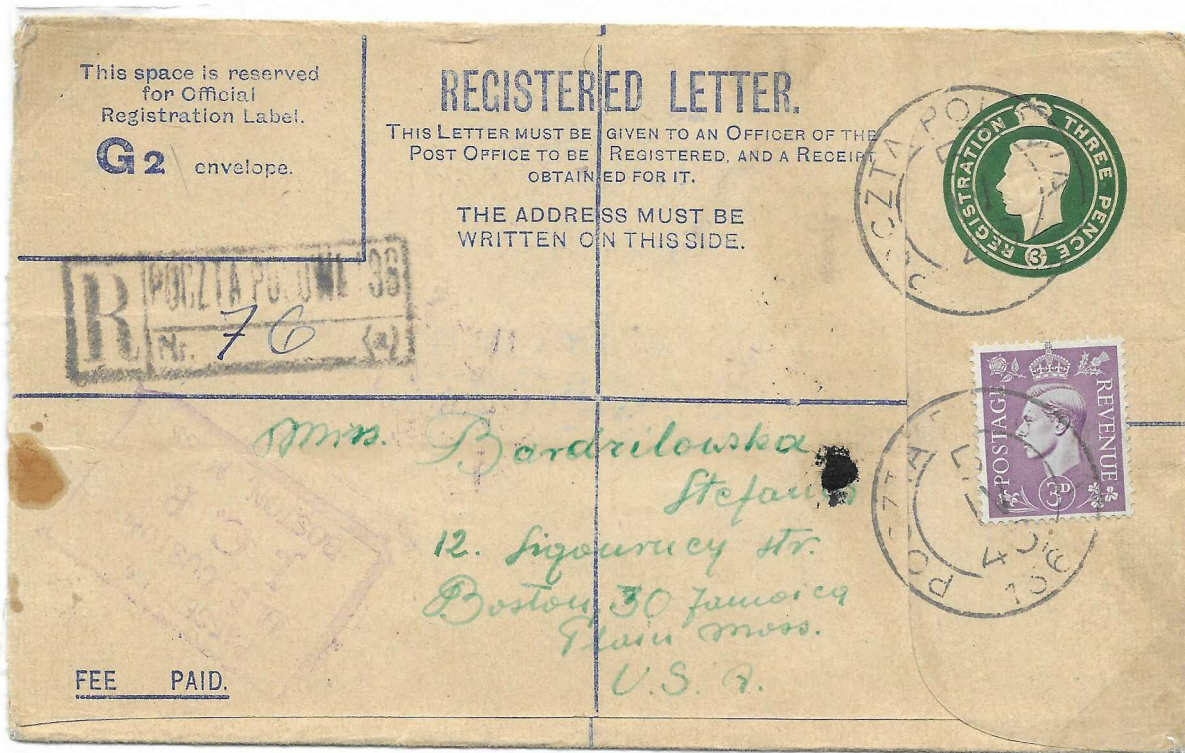 This space is reserved
for Official
Registration Label.
G2 envelope.
REGISTERED LETTER.
THIS LETTER MUST BE GIVEN TO AN OFFICER OF THE
POST OFFICE TO BE REGISTERED, AND A RECEIPT
OBTAINED FOR IT.
THE ADDRESS MUST BE
WRITTEN ON THIS SIDE.
REGISTRATION THREE PENCE 3
POCZTA POLOWA
R POCZTA POLOWE 136
Nr. 76 (a)
POSTAGE REVENUE
3D
POCZTA
136
Mrs. Bardzilowska
12. Sigourney str.
Boston 30 Jamaica
Plain Mass.
U.S.A.
BOSTON
FEE PAID.